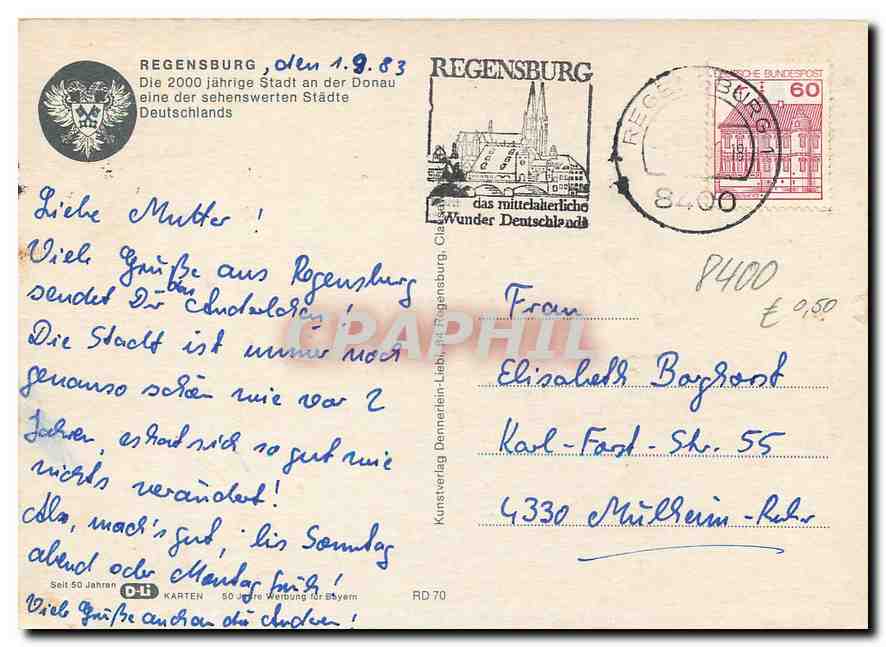 REGENSBURG, den 1.9.83
Die 2000 jährige Stadt an der Donau
eine der sehenswerten Städte
Deutschlands
REGENSBURG
das mittelalterliche
Wunder Deutschlands
REGENSBURG 1
8400
DEUTSCHE BUNDESPOST
60
Liebe Mutter!
Viele Grüße aus Regensburg
sendet Dir
Die Stadt ist immer noch
genauso schön wie vor 2
Jahren, es hat sich so gut wie
nichts verändert!
Also, mach's gut, bis Sonntag
abend oder Montag früh!
Viele Grüße auch an die Anderen!
Seit 50 Jahren D-Li KARTEN 50 Jahre Werbung für Bayern
RD 70
Kunstverlag Dennerlein-Liebl, 84 Regensburg,
8400
€ 0,50
Frau
Elisabeth Borghorst
Karl-Forst-Str. 55
4330 Mülheim-Ruhr
CPAPHIL